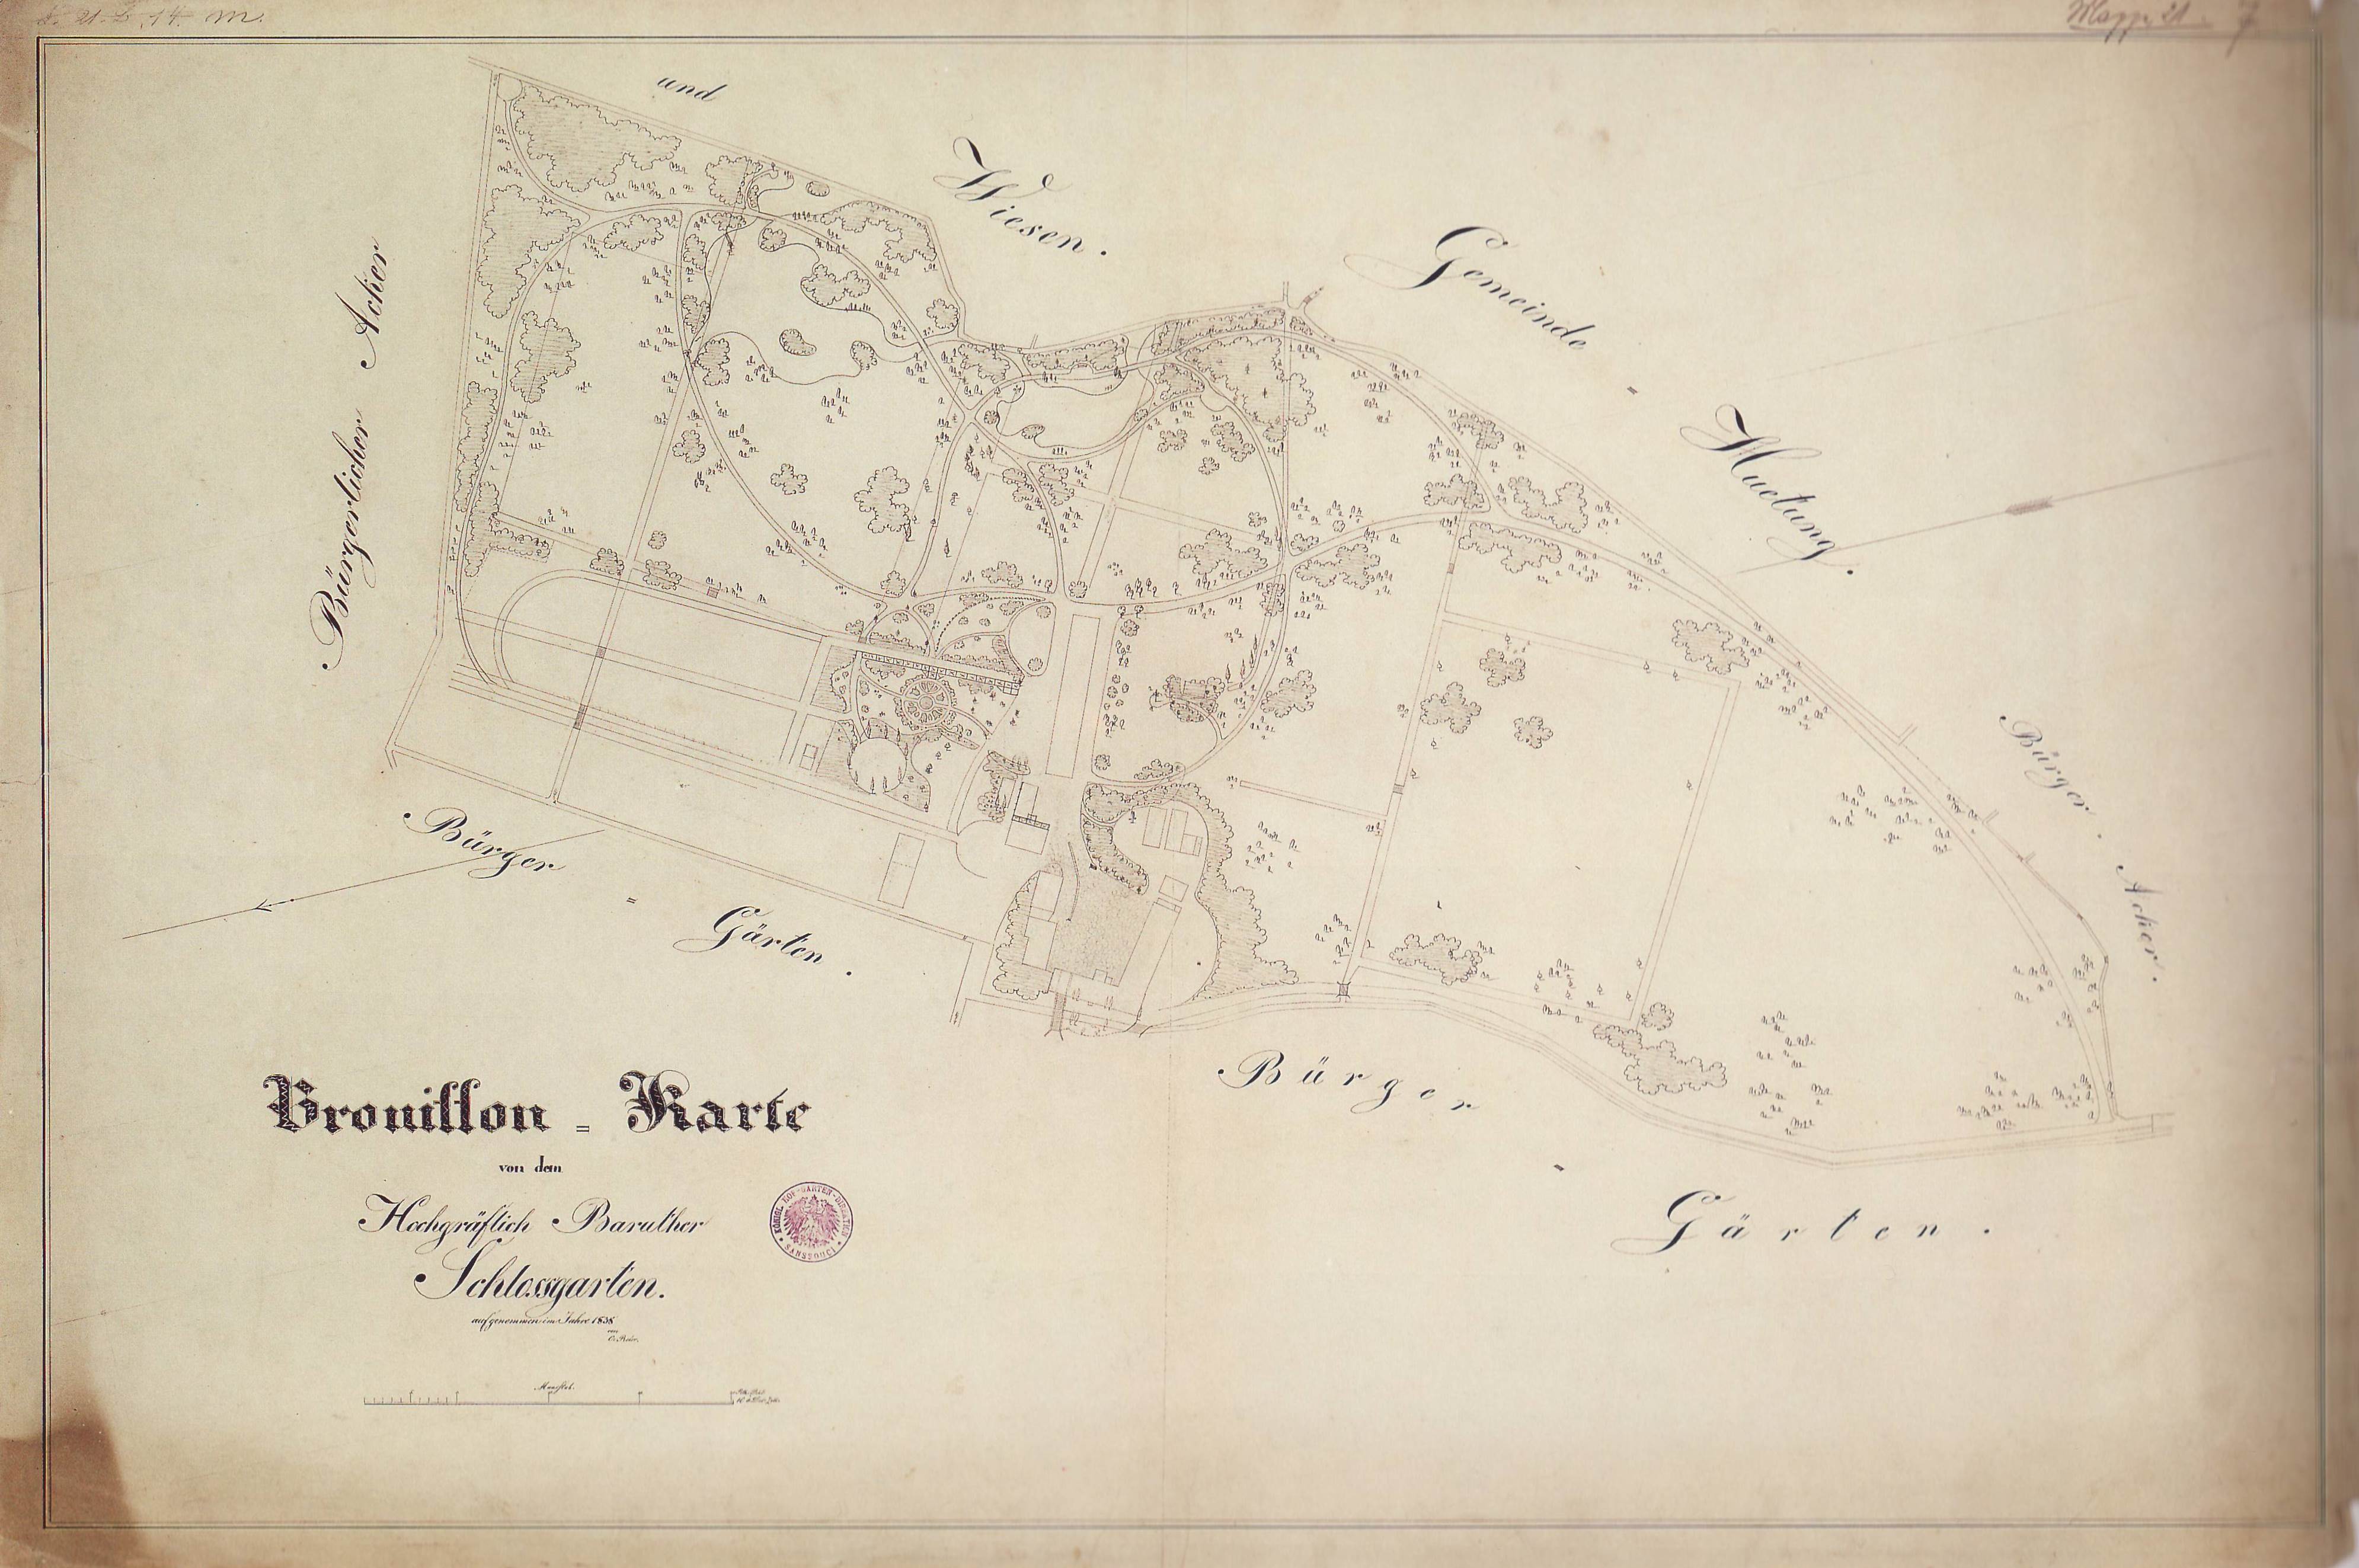 und
Wiesen.
Gemeinde - Huetung.
Bürgerlicher Acker
Bürger - Acker.
Bürger = Gärten.
Brouillon = Karte
von dem
Hochgräflich Baruther
Schlossgarten.
aufgenommen im Jahre 1838
von
Bürger - Gärten.
KÖNIGL. HOF-GARTEN-DIREKTION
SANSSOUCI
Maasstab.